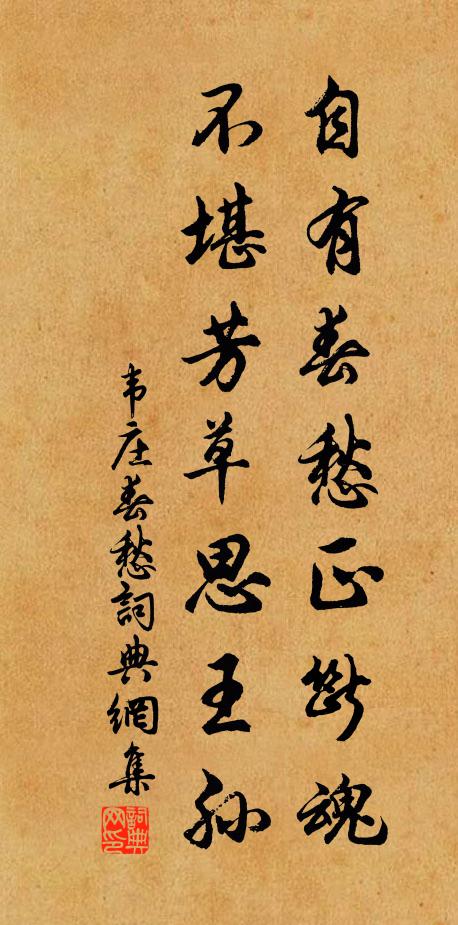 自有春愁正断魂
不堪芳草思王孙
韦庄春愁詞典網集
詞典网印